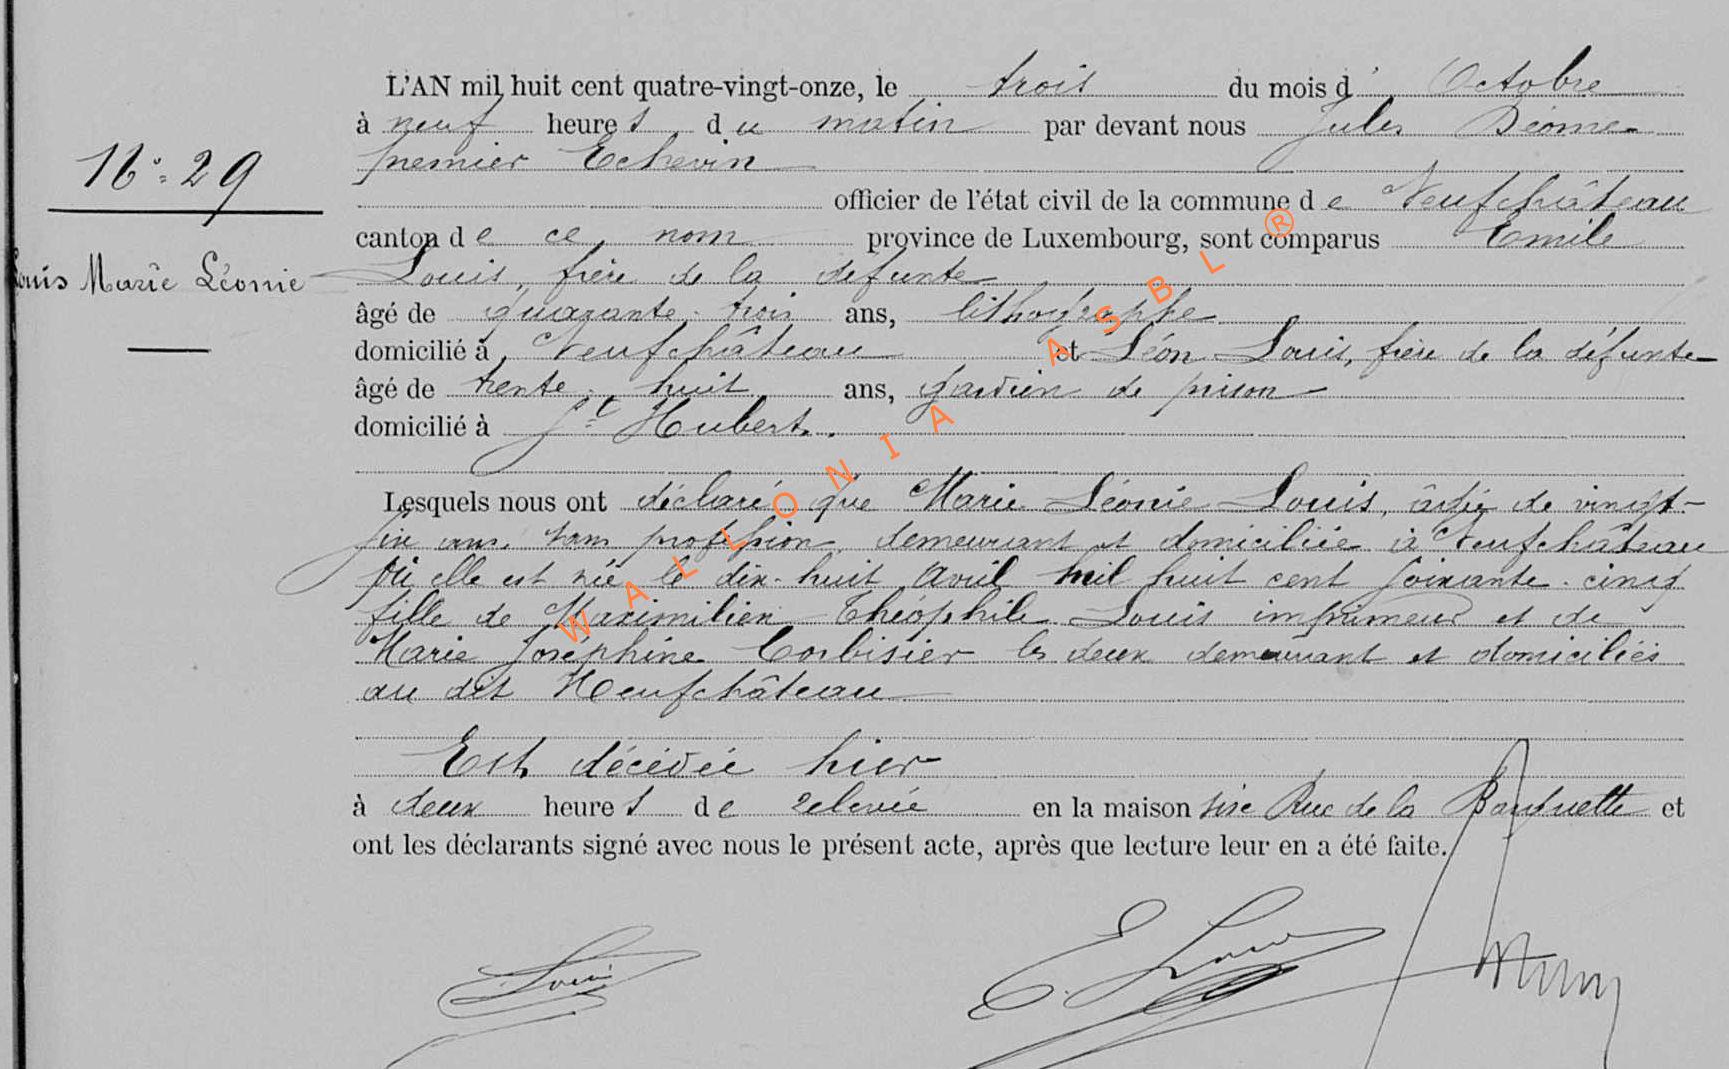 L'AN mil huit cent quatre-vingt-onze, le trois du mois d' Octobre
à neuf heures du matin par devant nous Jules
premier Echevin
N°: 29
officier de l'état civil de la commune de Neufchâteau
canton de ce nom province de Luxembourg, sont comparus Emile
Louis Marie Léonie
Louis, frère de la défunte
âgé de quarante-trois ans, lithographe
domicilié à Neufchâteau et Léon Louis, frère de la défunte
âgé de trente-huit ans, gardien de prison
domicilié à St Hubert.
Lesquels nous ont déclaré que Marie Léonie Louis, âgée de vingt-
six ans, sans profession, demeurant et domiciliée à Neufchâteau
où elle est née le dix-huit Avril mil huit cent soixante-cinq
fille de Maximilien Théophile Louis imprimeur et de
Marie Joséphine Corbisier les deux demeurant et domiciliés
au dit Neufchâteau
Est décédée hier
à deux heures de relevée en la maison sise Rue de la Banquette et
ont les déclarants signé avec nous le présent acte, après que lecture leur en a été faite.
Louis
E. Louis
WALLONIA ASBL ®